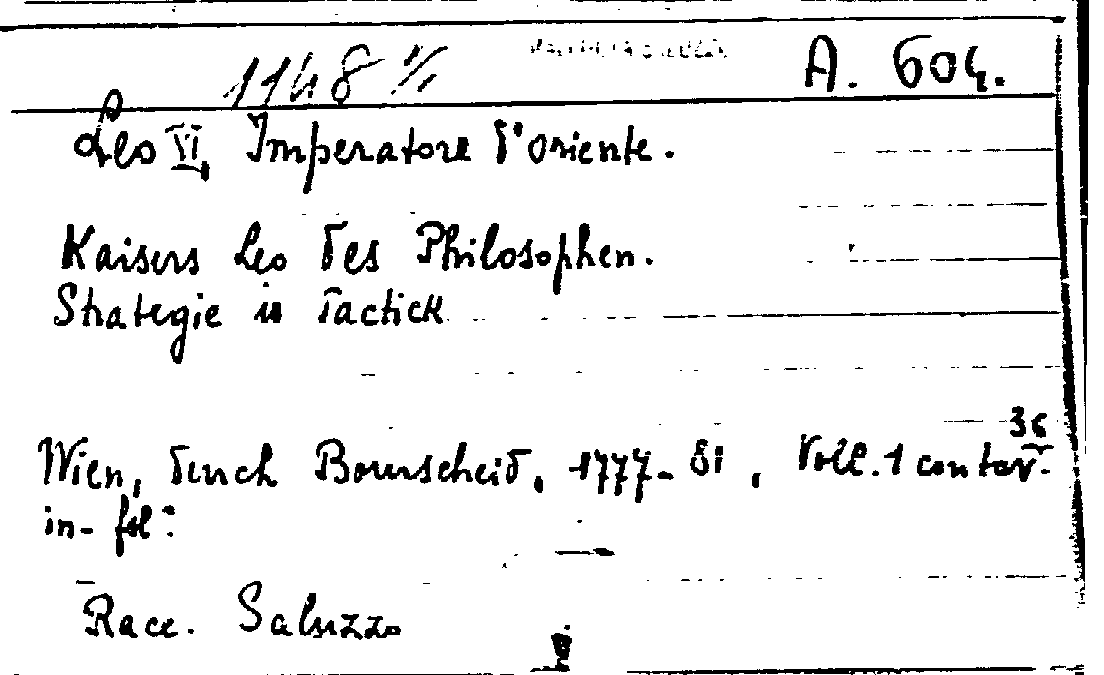 1148 1/1 A. 604.
Leo VI, Imperatore d'Oriente.
Kaisers Leo des Philosophen.
Strategie u Tactick
36
Wien, durch Bourscheid, 1777-81, Voll. 1 con tav.
in-fol:
Racc. Saluzzo